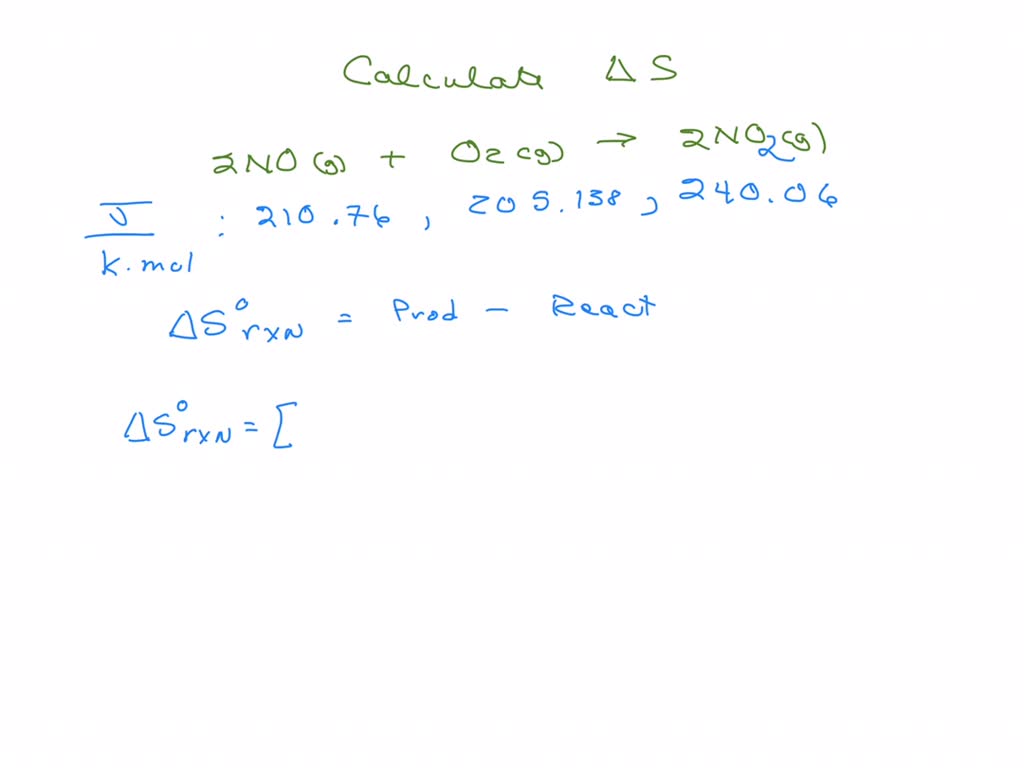 Calculate ΔS
2NO(g) + O2(g) → 2NO2(g)
J/K.mol : 210.76, 205.138, 240.06
ΔS°rxn = Prod - React
ΔS°rxn = [